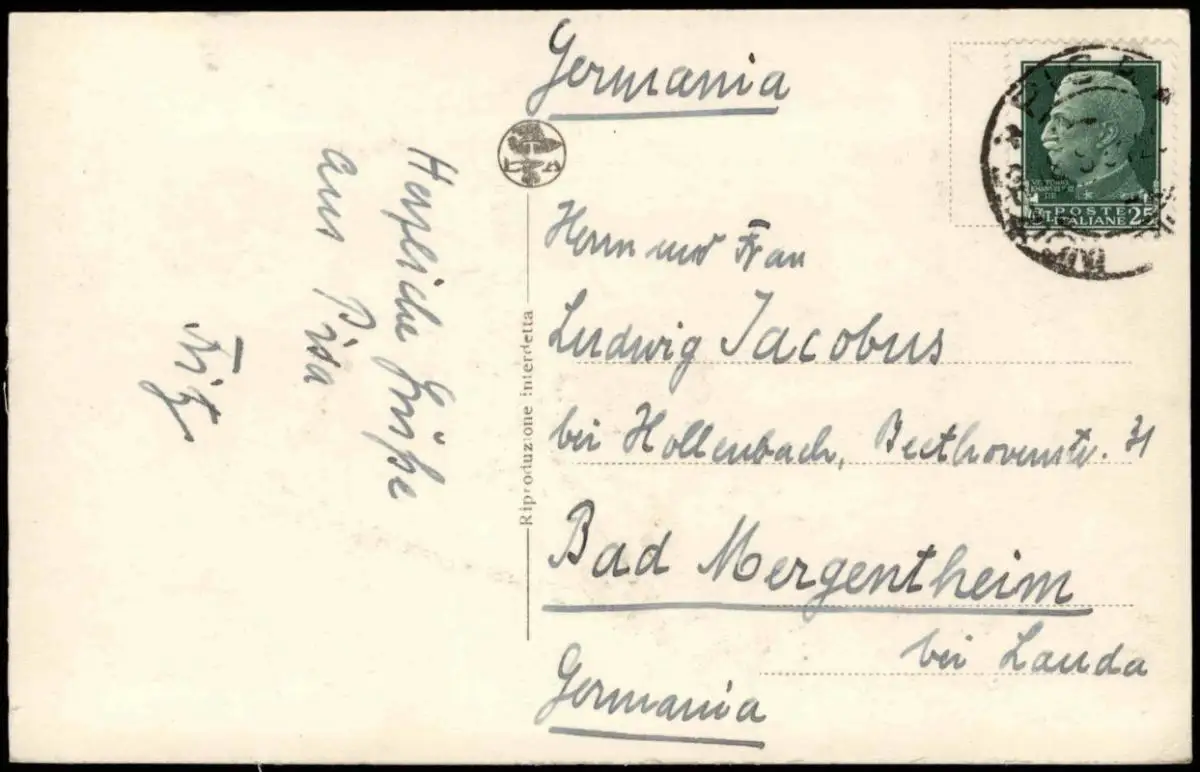 Germania
Herzliche Grüße
aus Pisa
Fritz
Riproduzione interdetta
Herrn und Frau
Ludwig Jacobus
bei Hollenbach, Beethovenstr.
Bad Mergentheim
bei Lauda
Germania
PISA
POSTE
ITALIANE 25